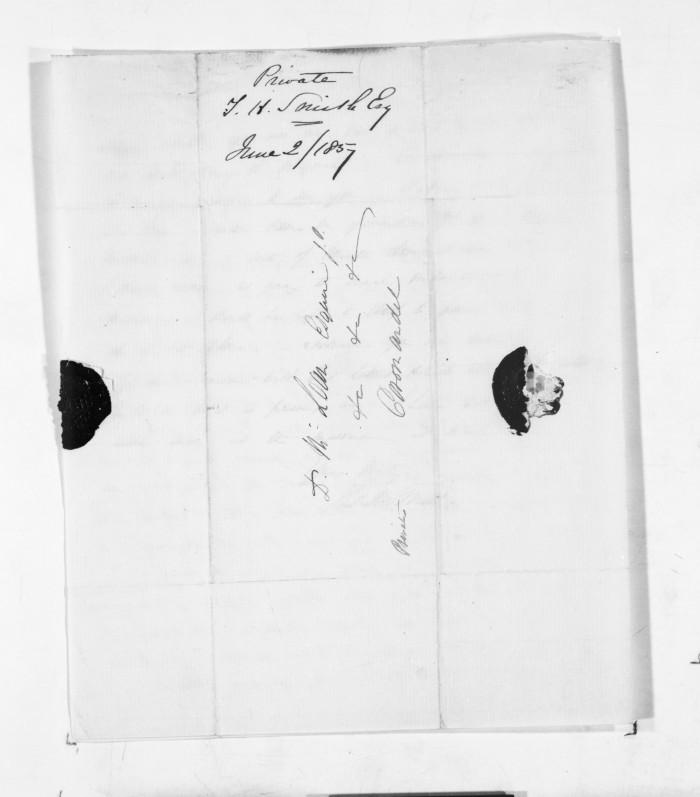 Private
T. H. Smith Esq
June 2/1857
D. Mc Lean Esquire
&c &c &c
Private